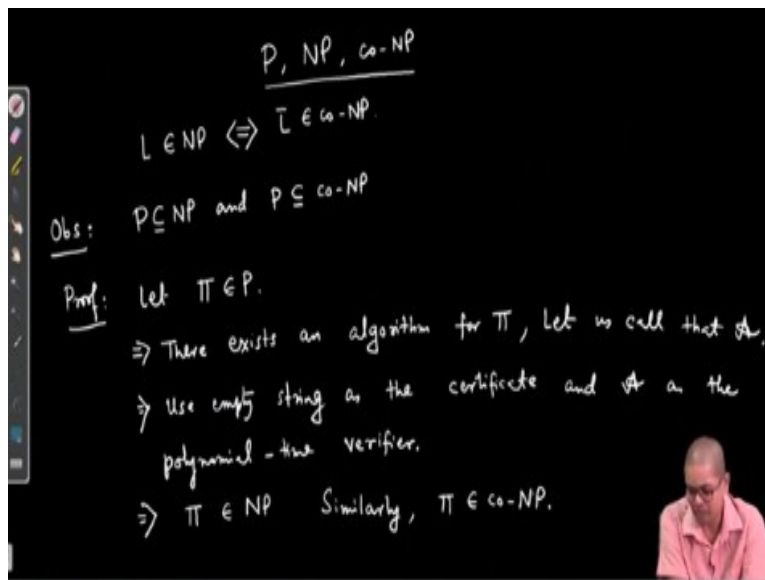 P, NP, co-NP
L ∈ NP ⇔ L̄ ∈ co-NP.
Obs: P ⊆ NP and P ⊆ co-NP
Proof: Let Π ∈ P.
⇒ There exists an algorithm for Π, Let us call that A.
⇒ Use empty string as the certificate and A as the
polynomial-time verifier.
⇒ Π ∈ NP Similarly, Π ∈ co-NP.